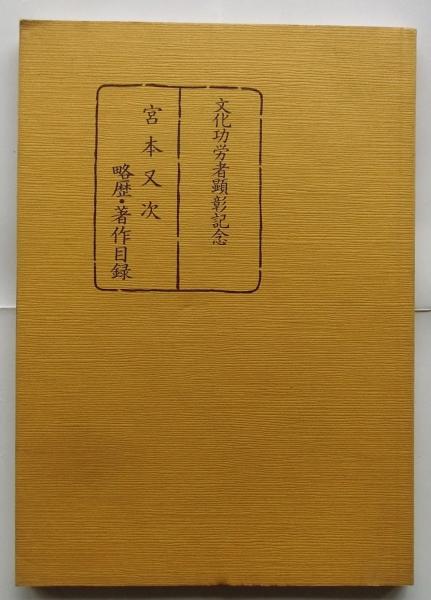 文化功労者顕彰記念
宮本又次
略歴・著作目録